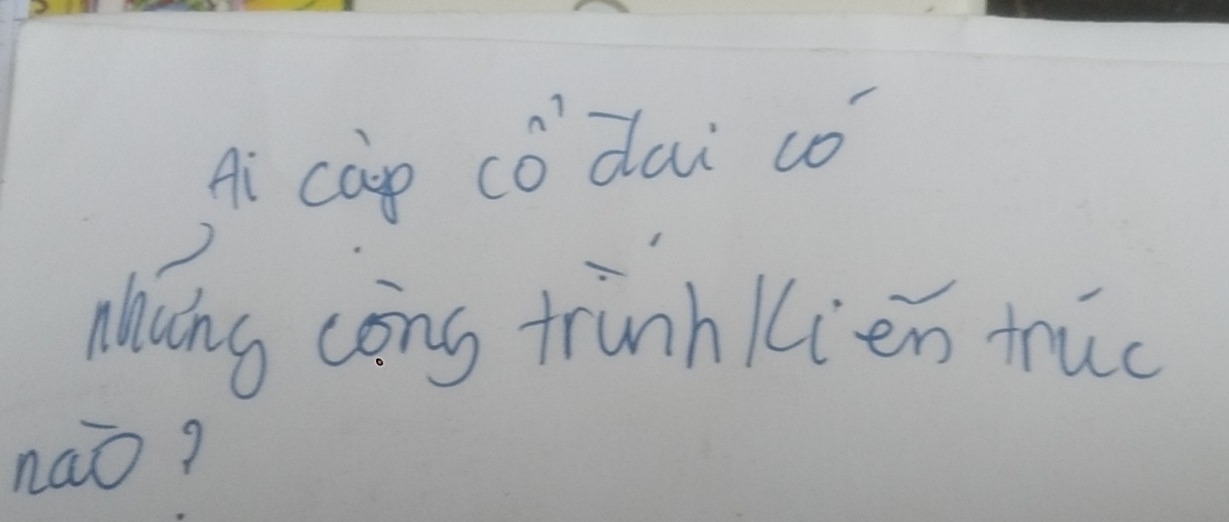 Ai cập cổ đại có
những công trình kiến trúc
nào?